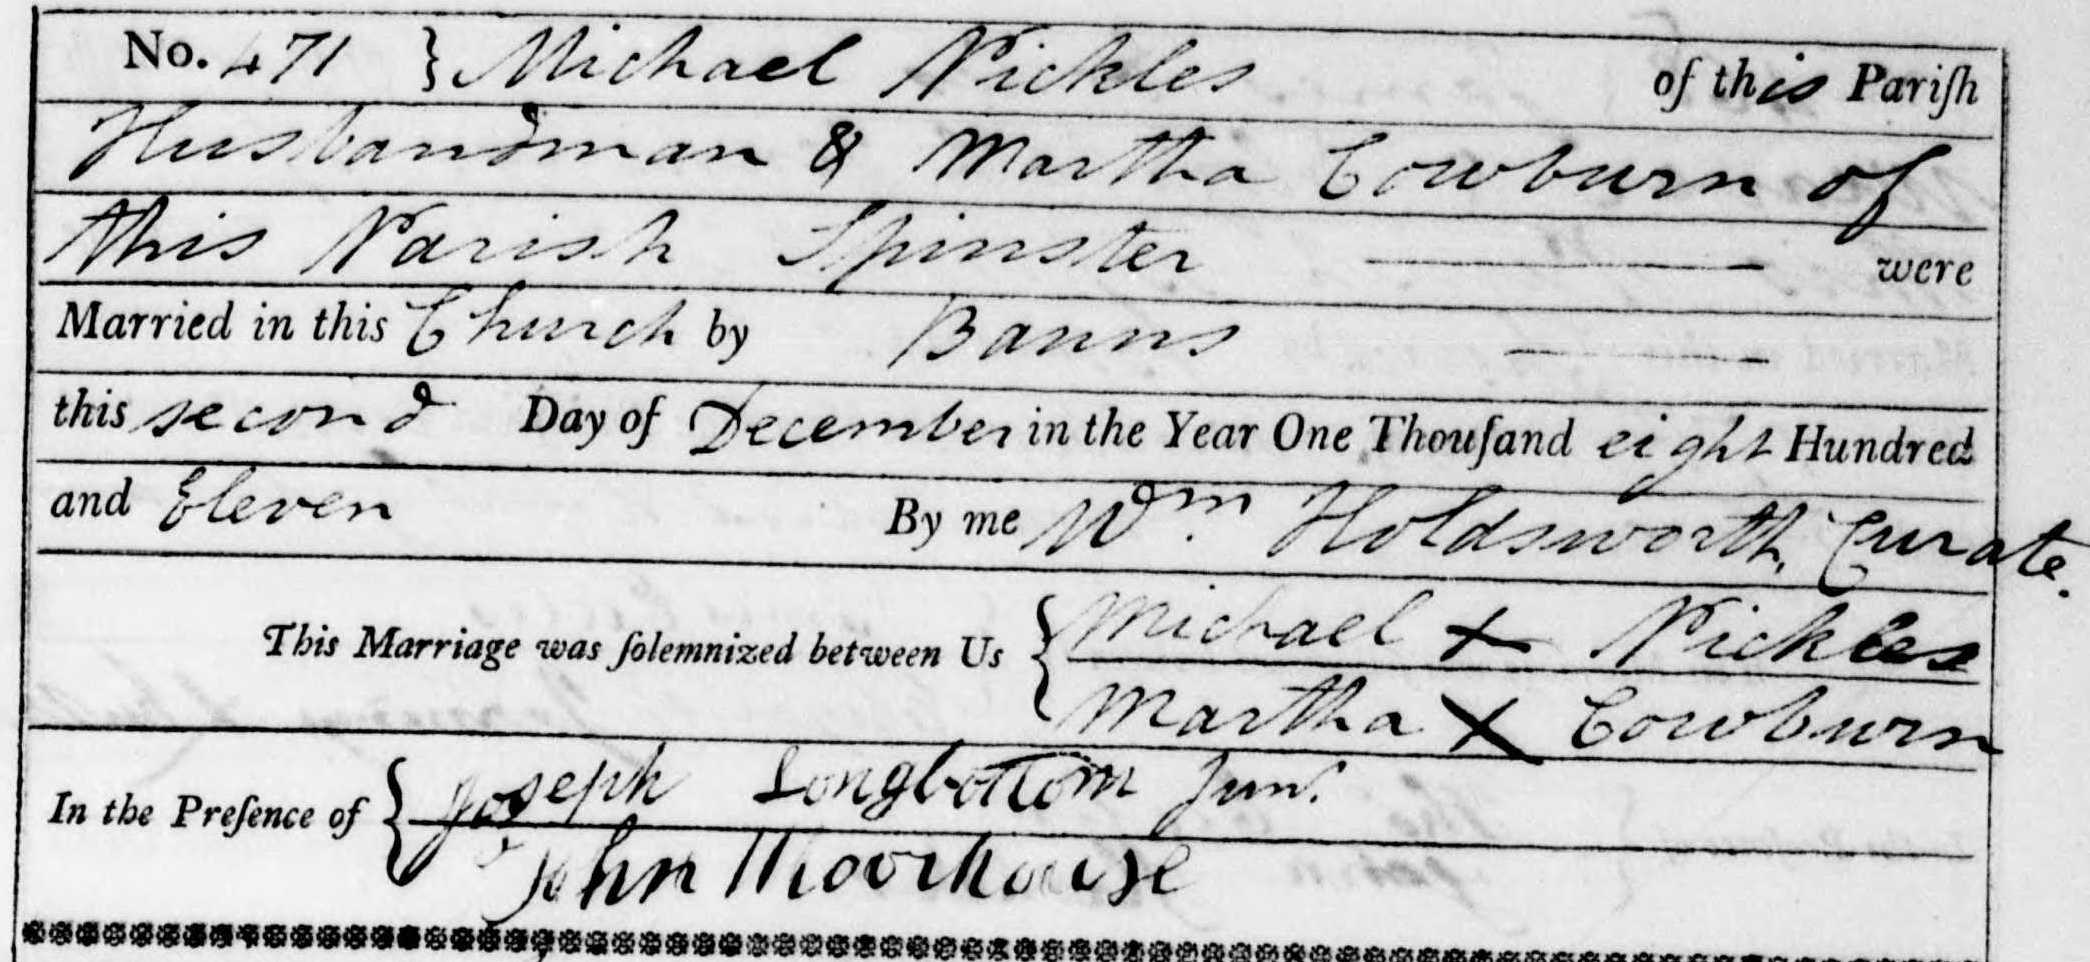 No. 471 } Michael Nickles of this Pariſh
Husbandman & Martha Cowburn of
this Parish Spinster ——— were
Married in this Church by Banns ———
this second Day of December in the Year One Thouſand eight Hundred
and Eleven By me Wm. Holdsworth, Curate.
This Marriage was ſolemnized between Us { Michael + Nickles
Martha X Cowburn
In the Preſence of { Joseph Longbottom Junr.
John Moorhouse